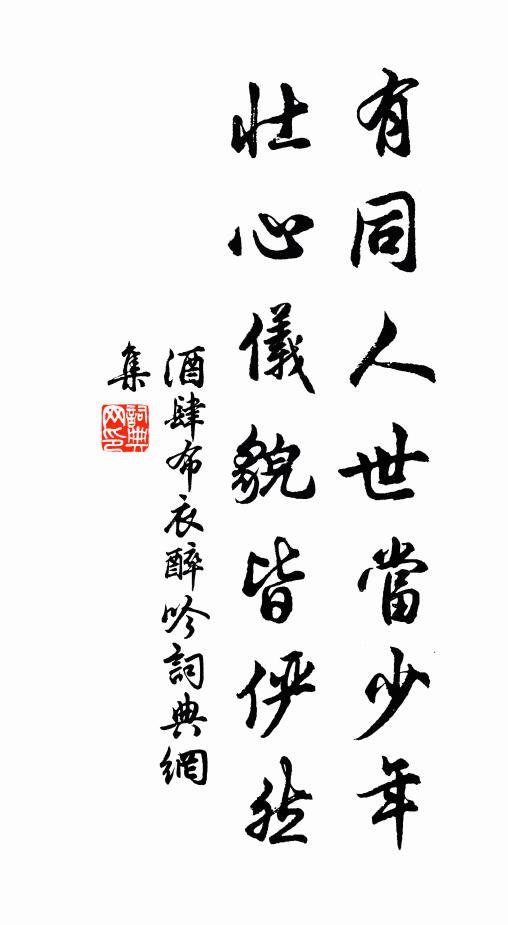 有同人世當少年
壯心儀貌皆儼然
酒肆布衣醉吟詞典網
集
詞典
网印